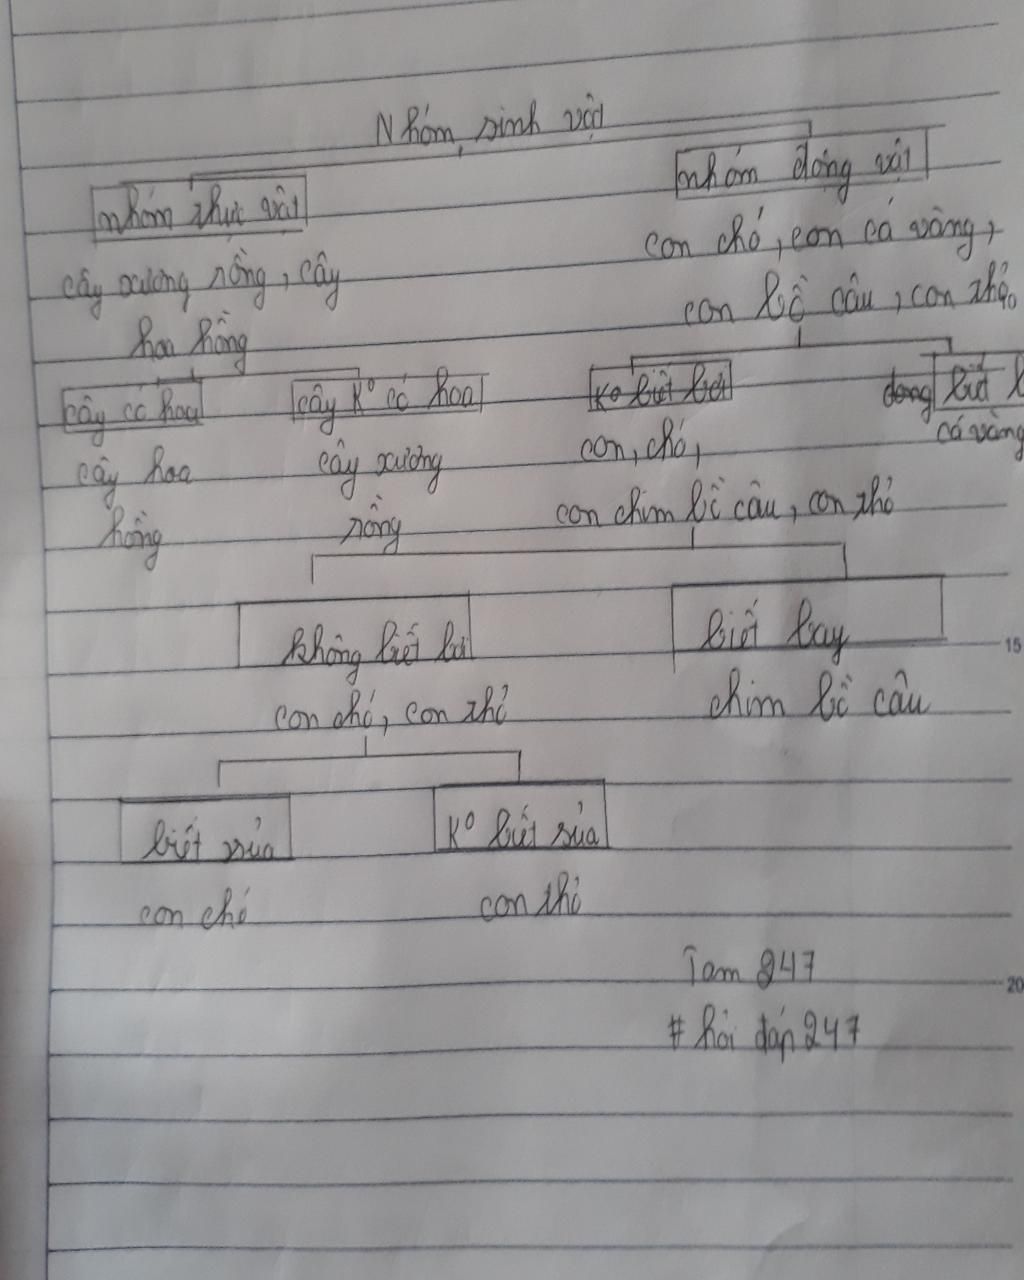 Nhóm sinh vật
nhóm thực vật
nhóm động vật
cây xương rồng, cây
hoa hồng
con chó, con cá vàng,
con bồ câu, con thỏ
cây có hoa
cây K° có hoa
K° biết bơi
biết
cây hoa
hồng
cây xương
rồng
con, chó,
con chim bồ câu, con thỏ
cá vàng
không biết
biết bay
con chó, con thỏ
chim bồ câu
biết sủa
K° biết sủa
con chó
con thỏ
Tam 247
# hỏi đáp 247
15
20